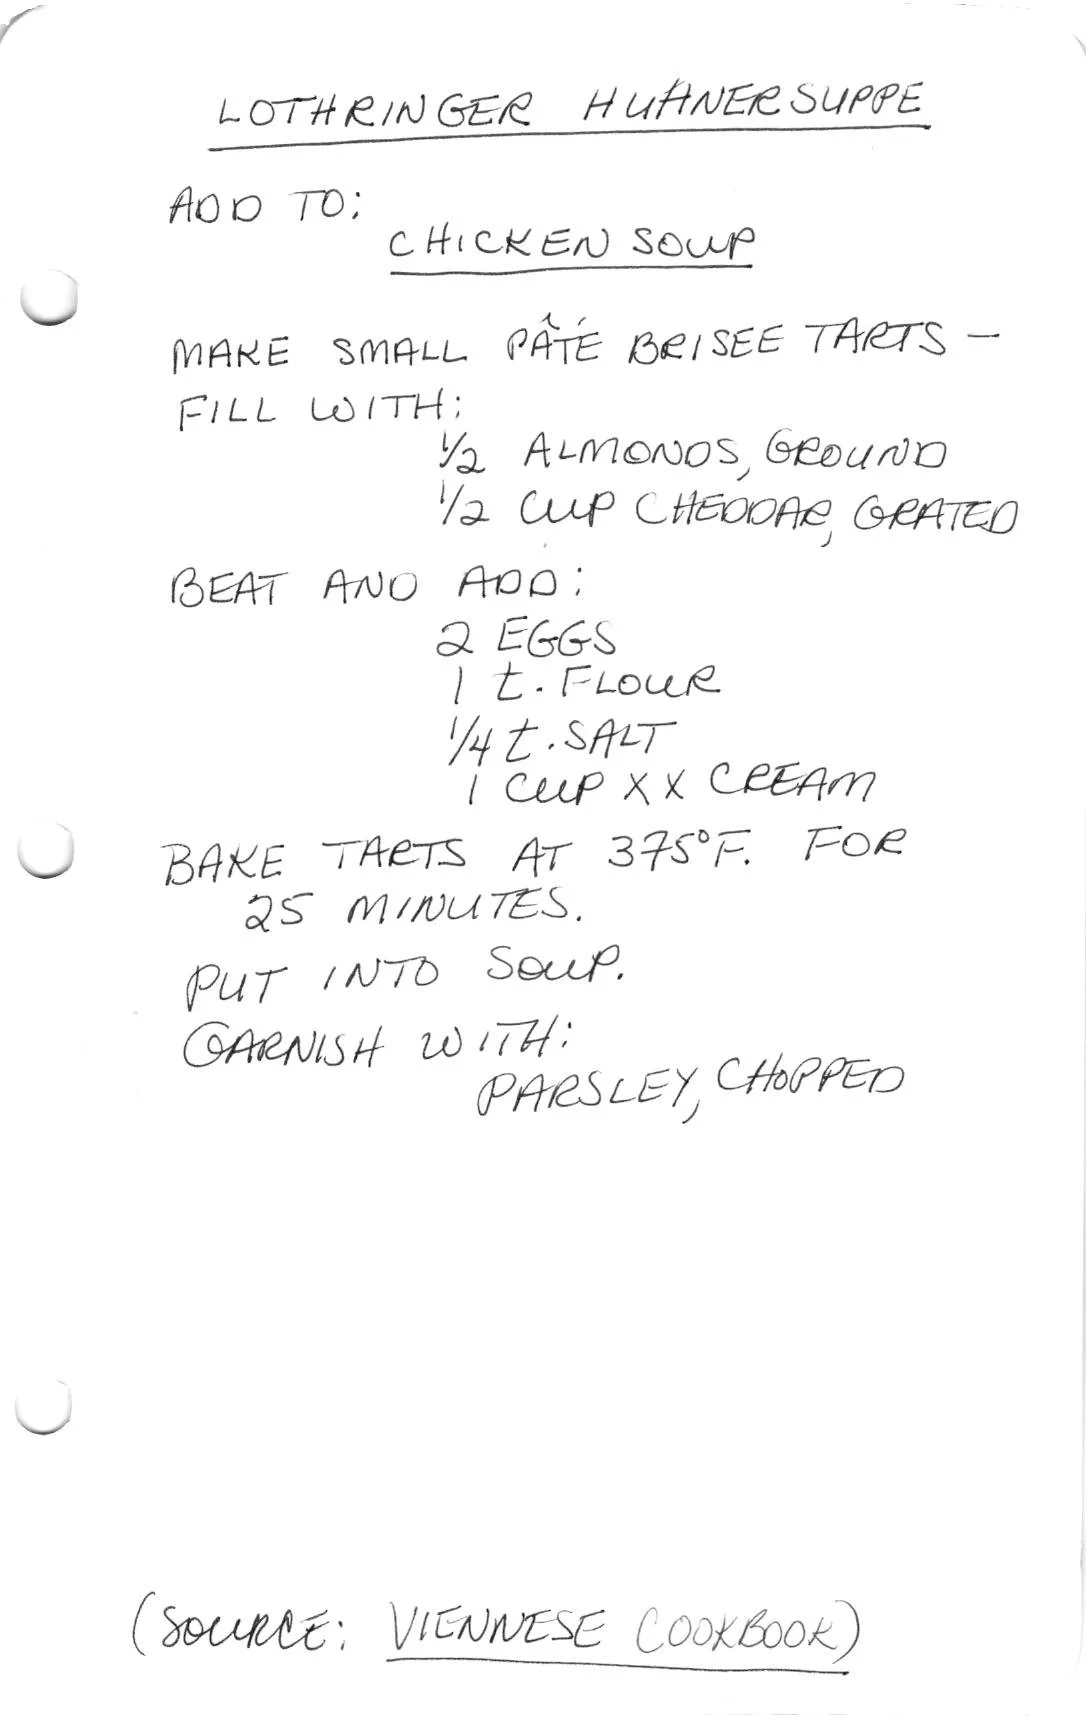 LOTHRINGER HUHNERSUPPE
ADD TO:
CHICKEN SOUP
MAKE SMALL PÂTÉ BRISEE TARTS –
FILL WITH:
1/2 ALMONDS, GROUND
1/2 CUP CHEDDAR, GRATED
BEAT AND ADD:
2 EGGS
1 t. FLOUR
1/4 t. SALT
1 CUP XX CREAM
BAKE TARTS AT 375°F. FOR
25 MINUTES.
PUT INTO SOUP.
GARNISH WITH:
PARSLEY, CHOPPED
(SOURCE: VIENNESE COOKBOOK)